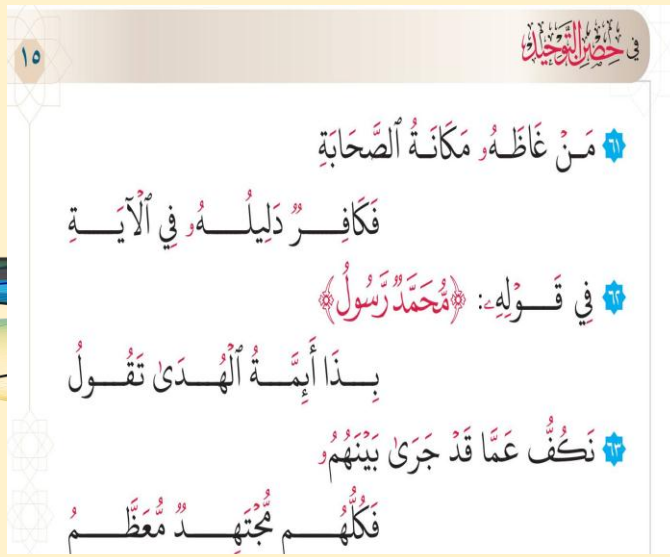 في حِصْنِ التَّوْحِيدِ
١٥
٦١ مَـنْ غَاظَـهُۥ مَكَانَـةُ ٱلصَّحَابَةِ
فَكَافِـــرٌ دَلِيلُـــهُۥ فِي ٱلْآيَـــةِ
٦٢ فِي قَـــوْلِهِۦ: ﴿مُّحَمَّدٌ رَّسُولُ﴾
بِـــذَا أَئِمَّـــةُ ٱلْهُـــدَىٰ تَقُـــولُ
٦٣ نَكُفُّ عَمَّا قَدْ جَرَىٰ بَيْنَهُمُۥ
فَكُلُّهُـــم مُّجْتَهِـــدٌ مُّعَظَّـــمُ